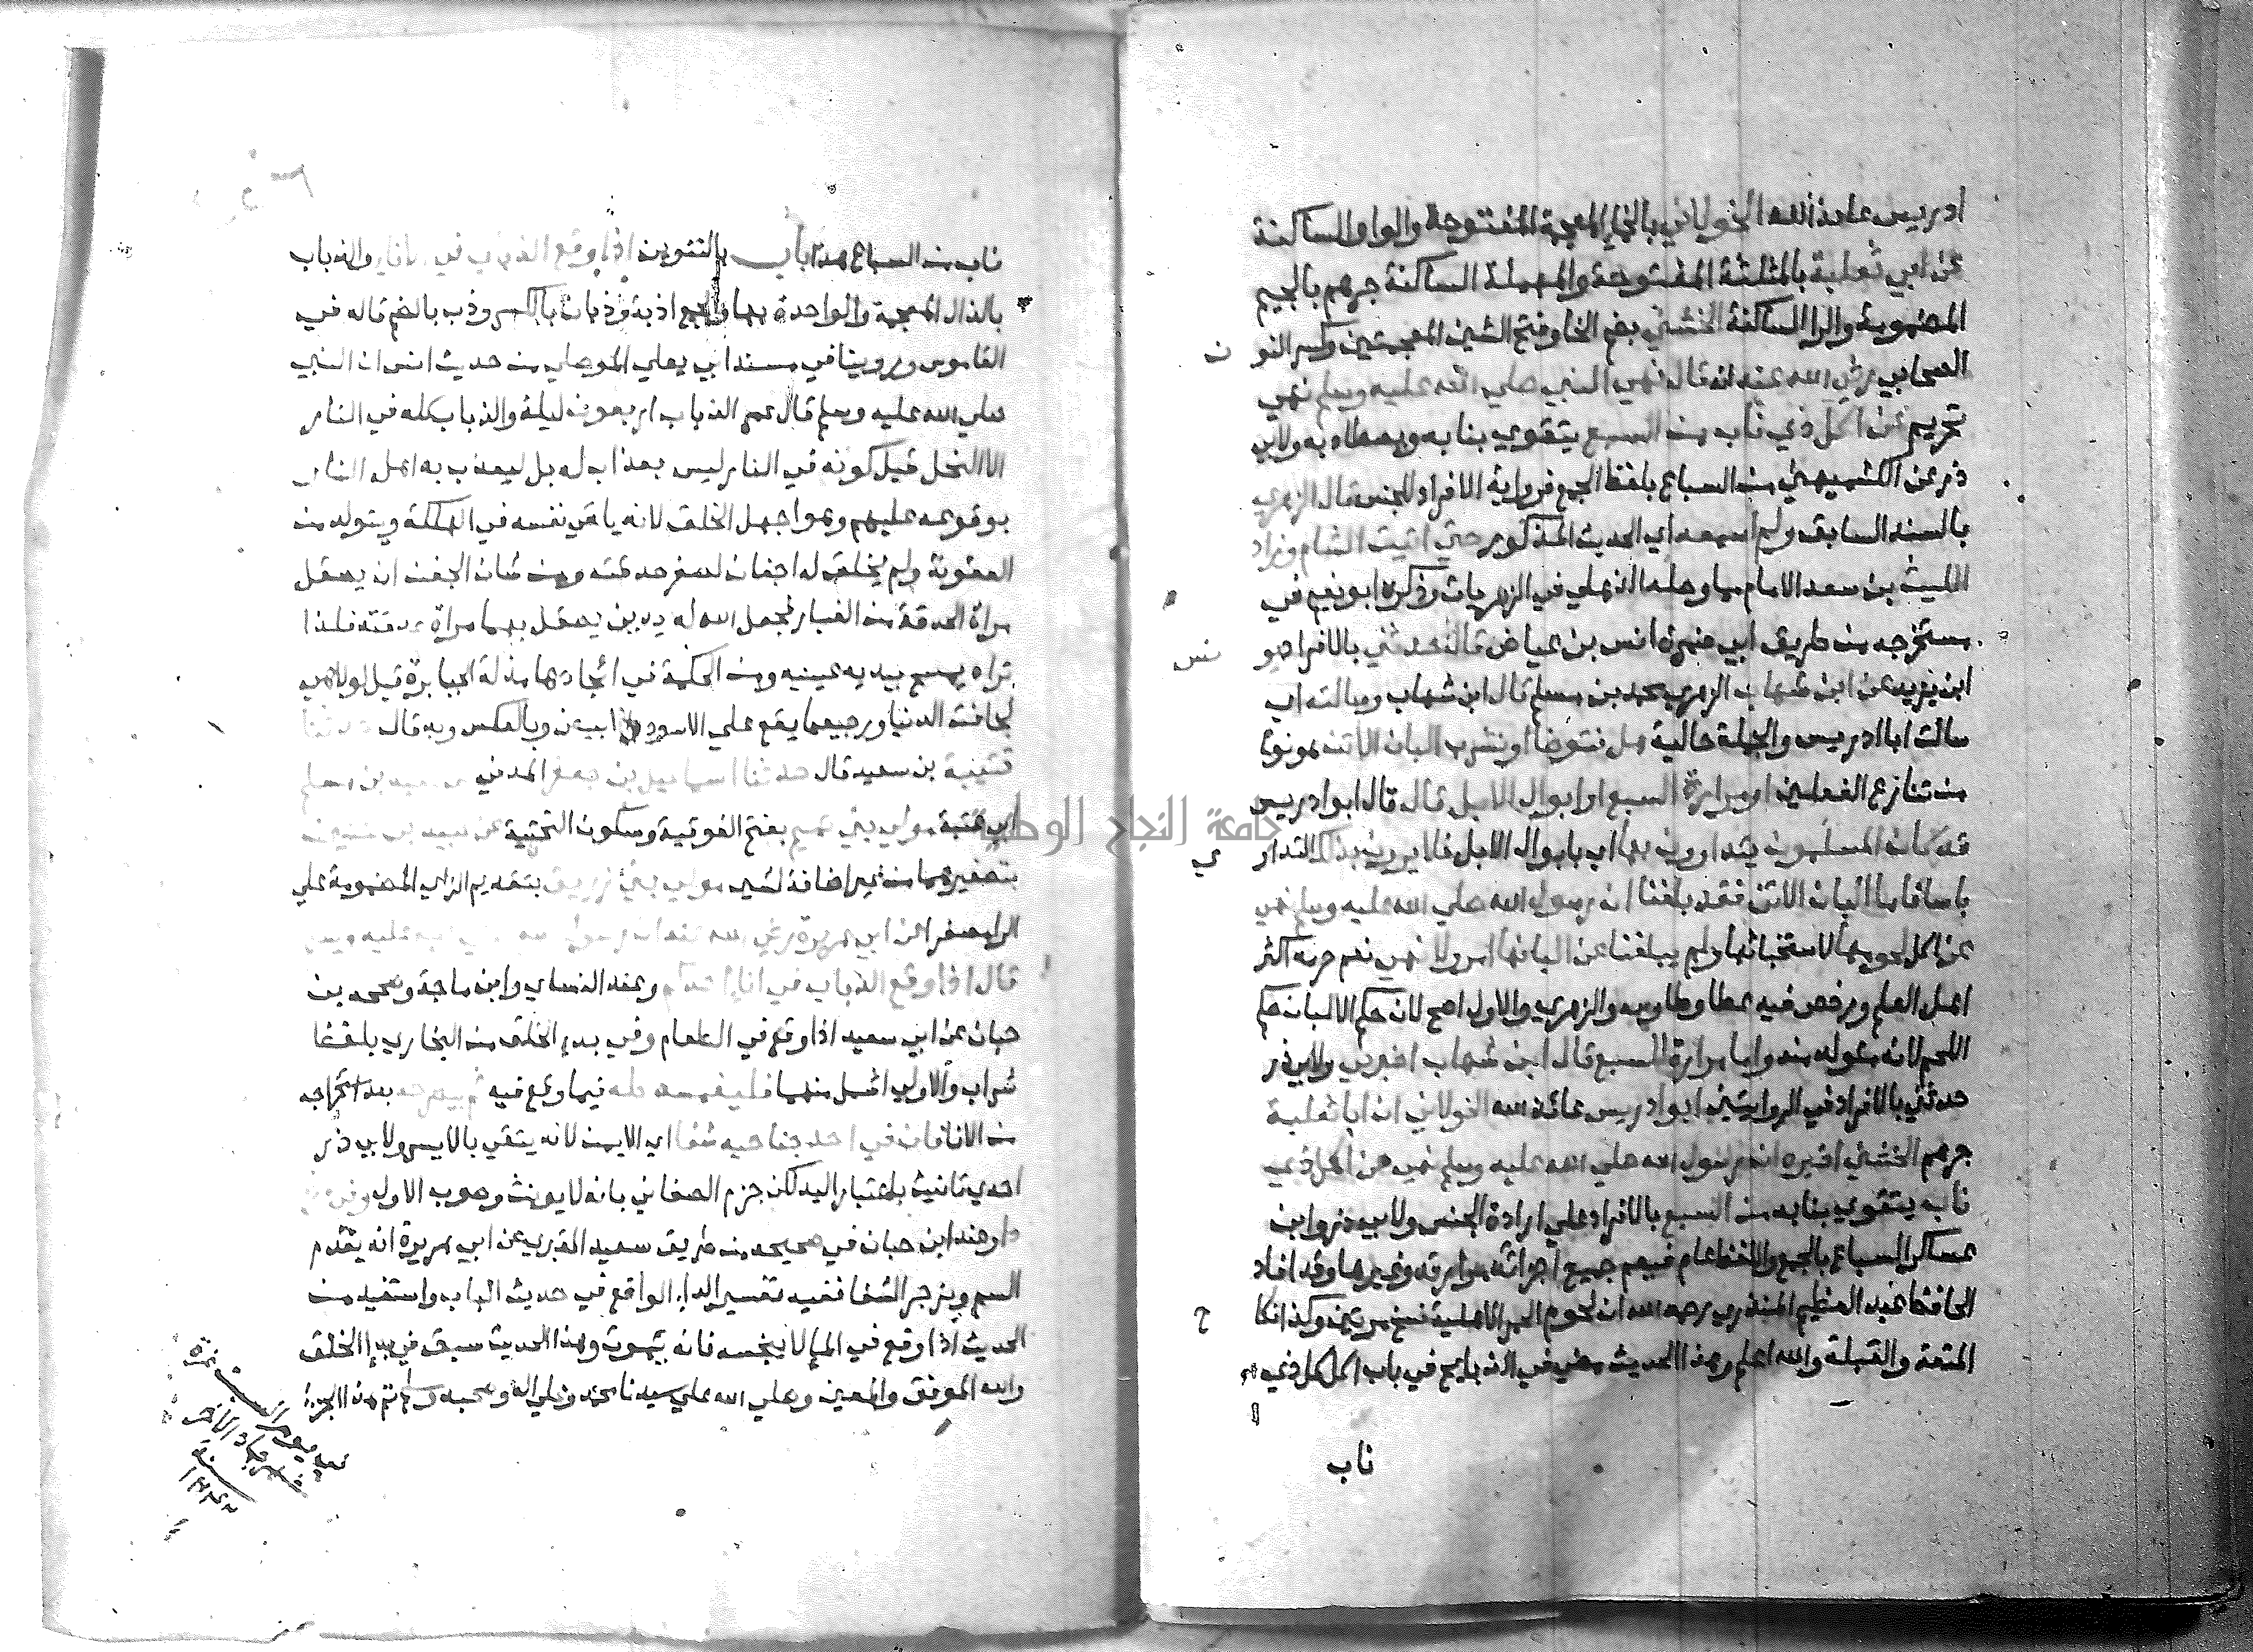 ادريس عائذ الله الخولاني بالخاء المعجمة المفتوحة والواو الساكنة
عن ابي ثعلبة بالمثلثة المفتوحة والمهملة الساكنة جرهم بالجيم
المضمومة والرا الساكنة الخشني بضم الخا وفتح الشين المعجمتين وكسر النون
الصحابي رضي الله عنه انه قال نهي النبي صلي الله عليه وسلم نهي
تحريم عن اكل كل ذي ناب من السبع يتقوي بنابه ويصطاد به ولابي
ذر عن الكشميهني من السباع بلفظ الجمع فرواية الافراد للجنس قال الزهري
بالسند السابق ولم اسمعه اي الحديث المذكور حتي اتيت الشام وزاد
الليث بن سعد الامام مما وصله الذهلي في الزهريات وذكره ابو نعيم في
مستخرجه من طريق ابي ضمرة انس بن عياض قال حدثني بالافراد يونس
ابن يزيد عن ابن شهاب الزهري محمد بن مسلم قال ابن شهاب وسالته اي
سالت ابا ادريس والجملة حالية هل نتوضا او نشرب البان الاتن
من تنازع الفعلين او مرارة السبع او ابوال الابل قال قال ابو ادريس
قد كان المسلمون يتداوون بها اي بابوال الابل فلا يرون بذلك التداوي
باسا فاما البان الاتن فقد بلغنا ان رسول الله صلي الله عليه وسلم نهي
عن اكل لحومها لاستخباثها ولم يبلغنا عن البانها امر ولا نهي نعم حرمه اكثر
اهل العلم ورخص فيه عطا وطاوس والزهري والاول اصح لان حكم الالبان حكم
اللحم لانه متولد منه واما مرارة السبع قال ابن شهاب اخبرني ولابي ذر
حدثني بالافراد في الروايتين ابو ادريس عائذ الله الخولاني ان ابا ثعلبة
جرهم الخشني اخبره ان رسول الله صلي الله عليه وسلم نهي عن اكل كل ذي
ناب يتقوي بنابه من السبع بالافراد علي ارادة الجنس ولابي ذر وابن
عساكر السباع بالجمع واللفظ عام فيعم جميع اجزائه مرارته وغيرها وقد افاد
الحافظ عبد العظيم المنذري رحمه الله ان لحوم الحمر الاهلية نسخ مرتين وكذا نكاح
المتعة والقبلة والله اعلم وهذا الحديث مضي في الذبايح في باب اكل كل ذي
ناب
ناب من السباع هذا باب بالتنوين اذا وقع الذباب في الاناء والذباب
بالذال المعجمة والواحدة بهاء والجمع اذبة وذبان بالكسر وذب بالضم قاله في
القاموس وروينا في مسند ابي يعلي الموصلي من حديث انس ان النبي
صلي الله عليه وسلم قال عمر الذباب اربعون ليلة والذباب كله في النار
الا النحل قيل كونه في النار ليس بعذاب له بل ليعذب به اهل النار
بوقوعه عليهم وهو اجهل الخلق لانه يلقي نفسه في الهلكة ويتولد من
العفونة ولم يخلق له اجفان لصغر حدقته ومن شان الجفن ان يصقل
مراة الحدقة من الغبار فجعل الله له يدين يصقل بهما مراة حدقته فلذا
تراه يمسح بيديه عينيه ومن الحكمة في ايجادها مذلة الجبابرة قيل لولا هي
لجافت الدنيا ورجيعها يقع علي الاسود ابيض وبالعكس وبه قال حدثنا
قتيبة بن سعيد قال حدثنا اسماعيل بن جعفر المدني عن عتبة بن مسلم
ابي عتبة مولي بني تميم بفتح الفوقية وسكون التحتية عن عبيد بن حنين
بتصغيرهما من غير اضافة لشي مولي بني زريق بتقديم الزاي المضمومة علي
الرا مصغرا عن ابي هريرة رضي الله عنه ان رسول الله صلي الله عليه وسلم
قال اذا وقع الذباب في اناء احدكم وعند النساي وابن ماجة وصححه بن
حبان عن ابي سعيد اذا وقع في الطعام وفي بدء الخلق من البخاري بلفظ
شراب والاولي اشمل منهما فليغمسه كله فيما وقع فيه ثم ليطرحه بعد استخراجه
من الانا فان في احد جناحيه شفا اي الايمن لانه يتقي بالايسر ولابي ذر
احدي تانيث باعتبار اليد لكن جزم الصغاني بانه لا يونث وصوب الاول وفي الاخر
دا وعند ابن حبان في صحيحه من طريق سعيد المقبري عن ابي هريرة انه يقدم
السم ويؤخر الشفا ففيه تفسير الداء الواقع في حديث الباب واستفيد من
الحديث اذا وقع في الماء لا ينجسه فانه يموت وهذا الحديث سبق في بدء الخلق
والله الموفق والمعين وصلي الله علي سيدنا محمد وعلي اله وصحبه وسلم تم هذا الجزء
في يوم السبت غرة
شهر جماد الاخر
سنة